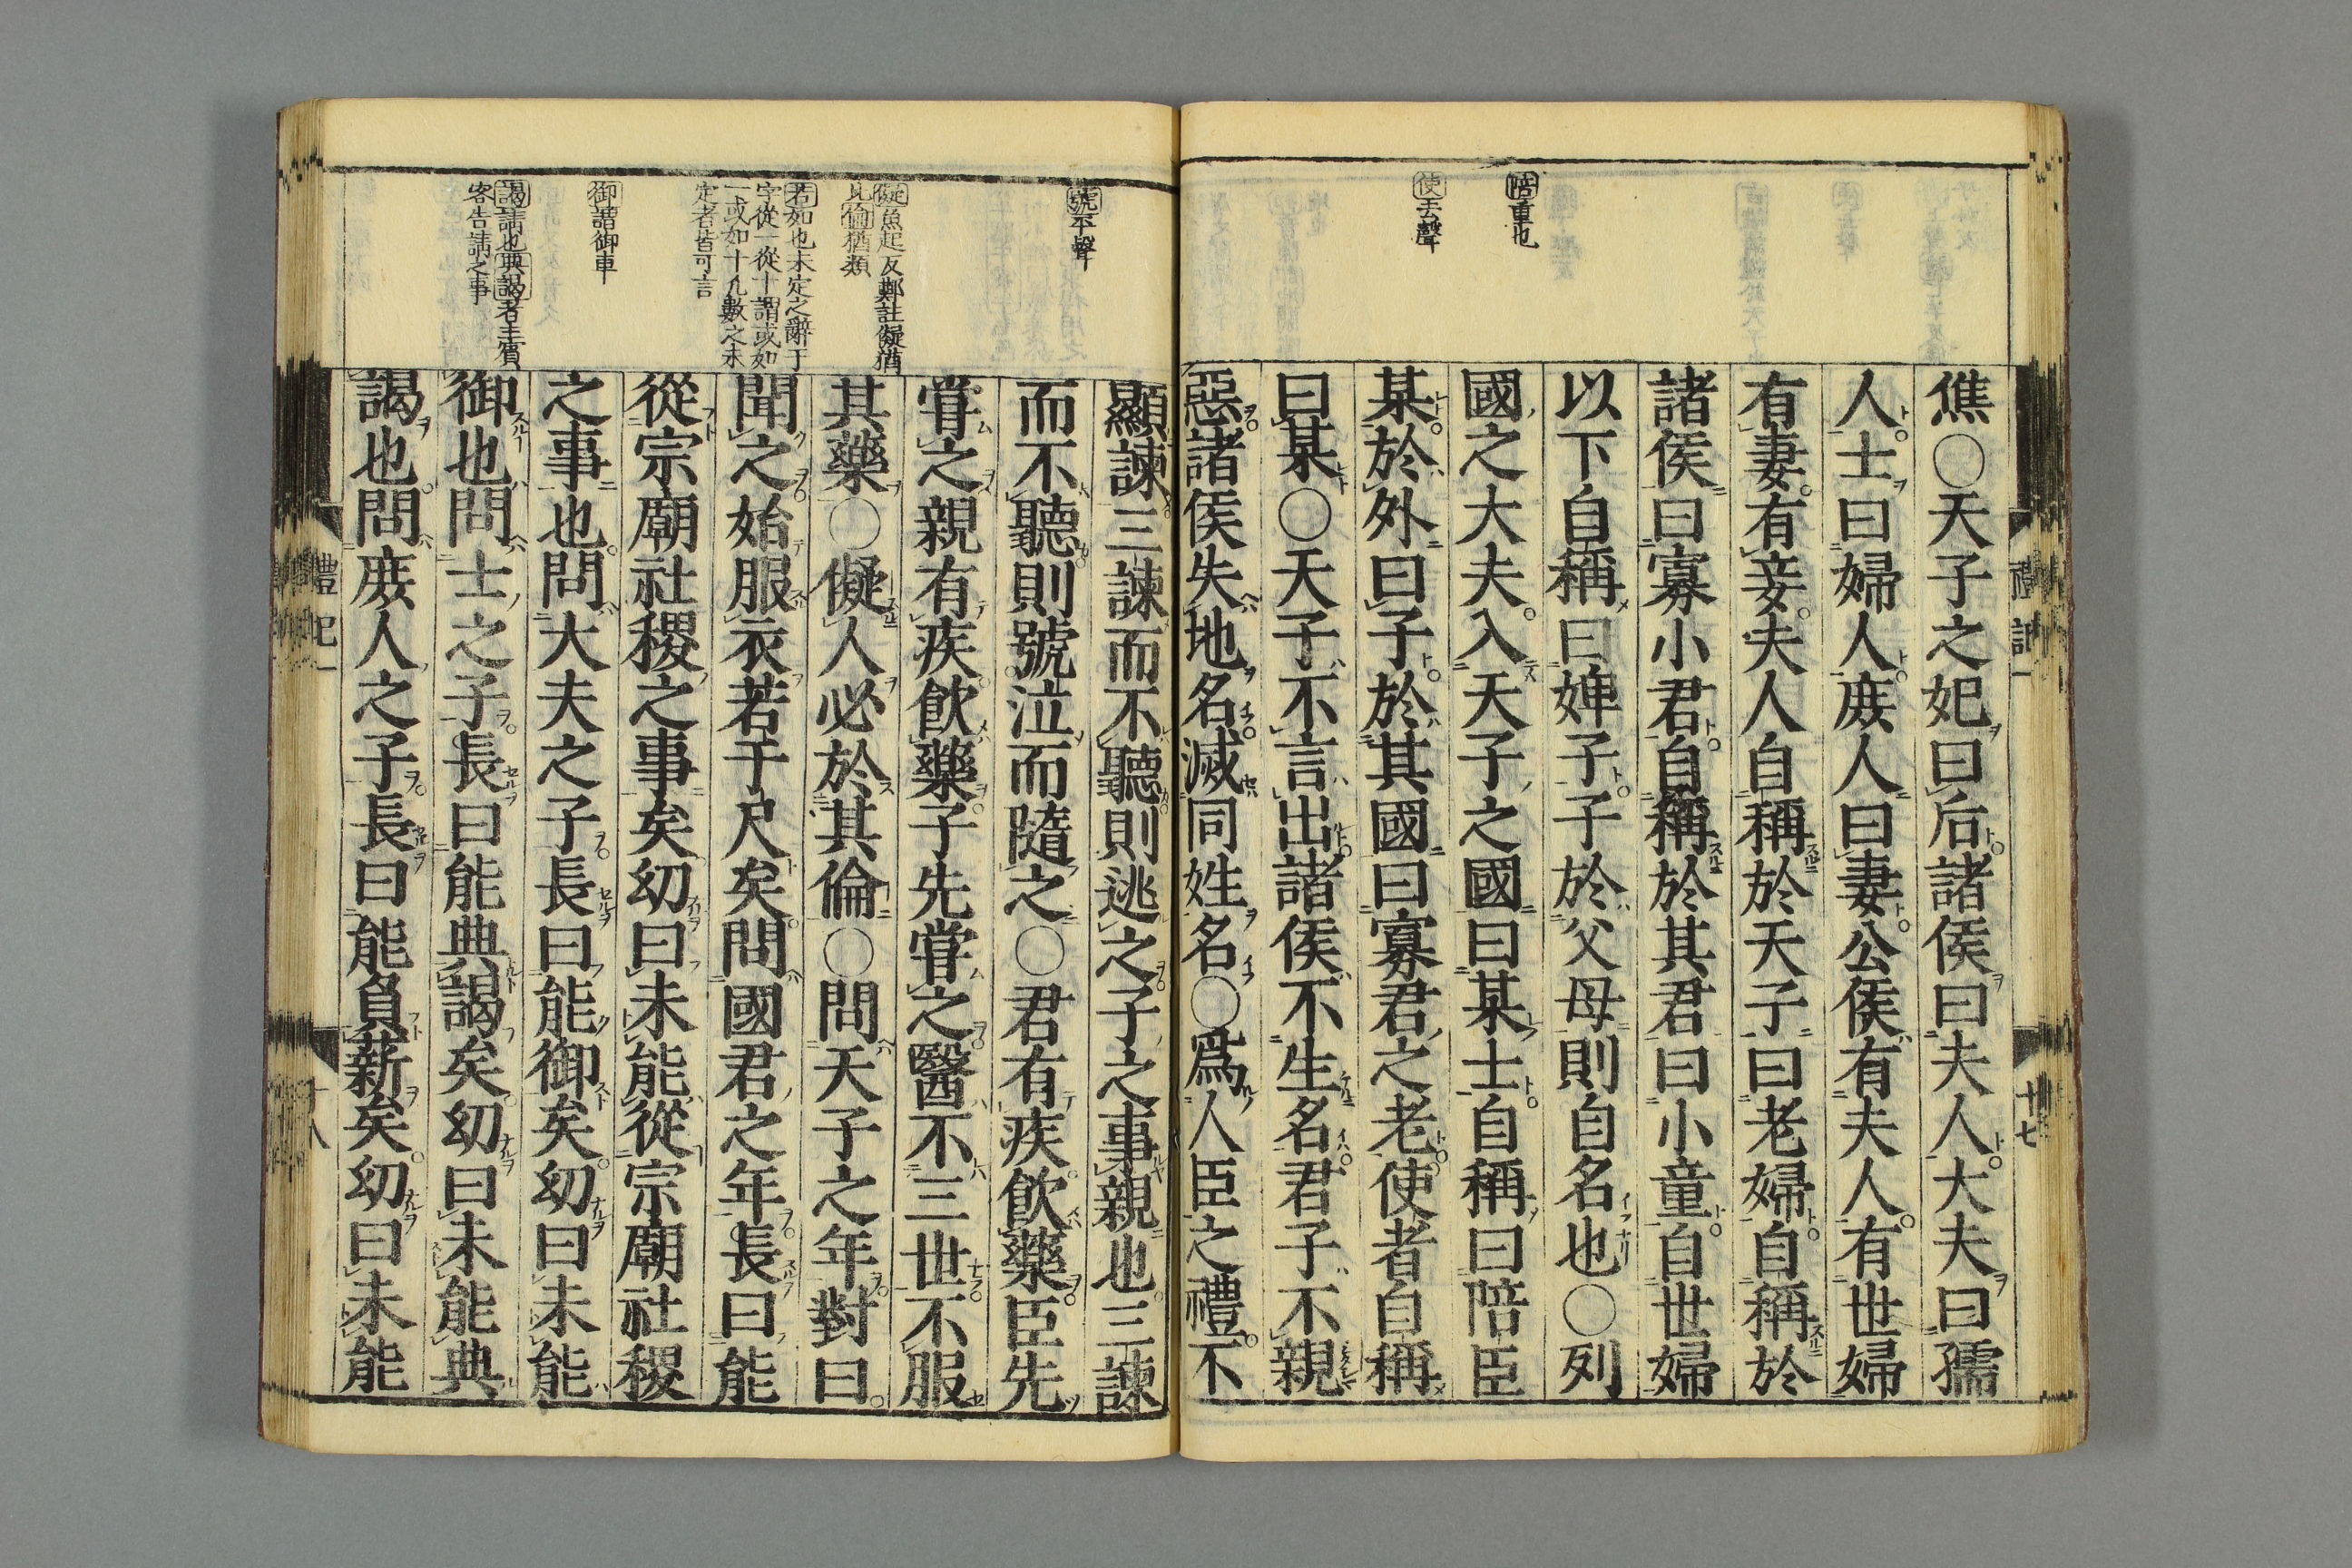 陪重也
使去聲
焦○天子之妃曰后諸侯曰夫人大夫曰孺
人士曰婦人庻人曰妻公侯有夫人有世婦
有妻有妾夫人自稱於天子曰老婦自稱於
諸侯曰寡小君自稱於其君曰小童自世婦
以下自稱曰婢子子於父母則自名也○列
國之大夫入天子之國曰某士自稱曰陪臣
某於外曰子於其國曰寡君之老使者自稱
曰某○天子不言出諸侯不生名君子不親
惡諸侯失地名滅同姓名○爲人臣之禮不
禮記一
十七
號平聲
儗魚起反鄭註儗猶
比倫猶類
若如也未定之辭于
字從一從十謂或如
一或如十凡數之未
定者皆可言
御謂御車
謁請也典謁者主賓
客告請之事
顯諫三諫而不聽則逃之子之事親也三諫
而不聽則號泣而隨之○君有疾飮藥臣先
甞之親有疾飮藥子先甞之醫不三世不服
其藥○儗人必於其倫○問天子之年對曰
聞之始服衣若干尺矣問國君之年長曰能
從宗廟社稷之事矣幼曰未能從宗廟社稷
之事也問大夫之子長曰能御矣幼曰未能
御也問士之子長曰能典謁矣幼曰未能典
謁也問庻人之子長曰能負薪矣幼曰未能
禮記一
十八